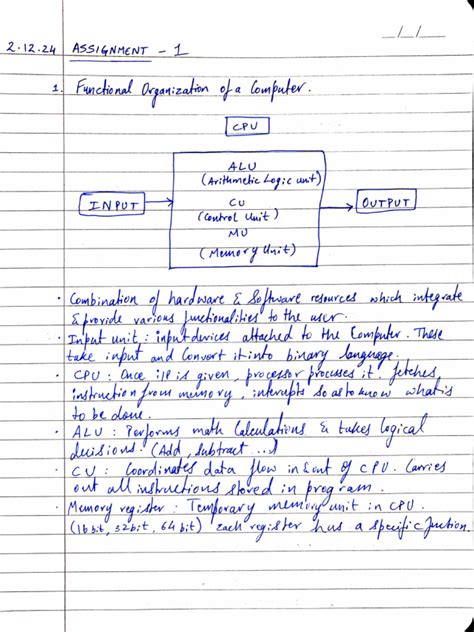 __/__/__
2.12.24 ASSIGNMENT - 1
1. Functional Organization of a Computer.
CPU
ALU
(Arithmetic Logic unit)
INPUT CU OUTPUT
(Control Unit)
MU
(Memory Unit)
· Combination of hardware & Software resources which integrate
& provide various functionalities to the user.
· Input unit : input devices attached to the Computer. These
take input and Convert it into binary language.
· CPU : Once i/p is given, processor processes it. fetches
instruction from memory, interupts so as to know what is
to be done.
· ALU : Performs math Calculations & takes logical
decisions. (Add, Subtract ...)
· CU : Coordinates data flow in & out of CPU. Carries
out all instructions stored in program.
· Memory register : Temporary memory unit in CPU.
(16 bit, 32 bit, 64 bit) each register has a specific function.